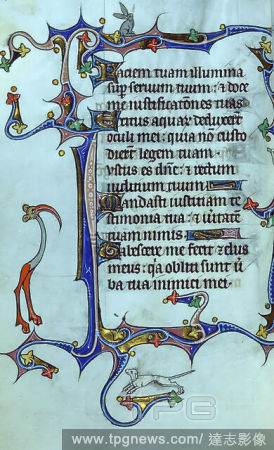 Faciem tuam illumina
sup servum tuum: & doce
me iustificacōnes tuas
Exitus aquar deduxert
oculi mei: quia nō custo
dierūt legem tuam
Iustus es dn̄e: & rectum
iudicium tuum
Mandasti iusticiam te
stimonia tua: & uitate
tuam nimis
Tabescere me fecit zelus
meus: qa obliti sunt ū
ba tua inimici mei
PG
www.tpgnews.com / 達志影像